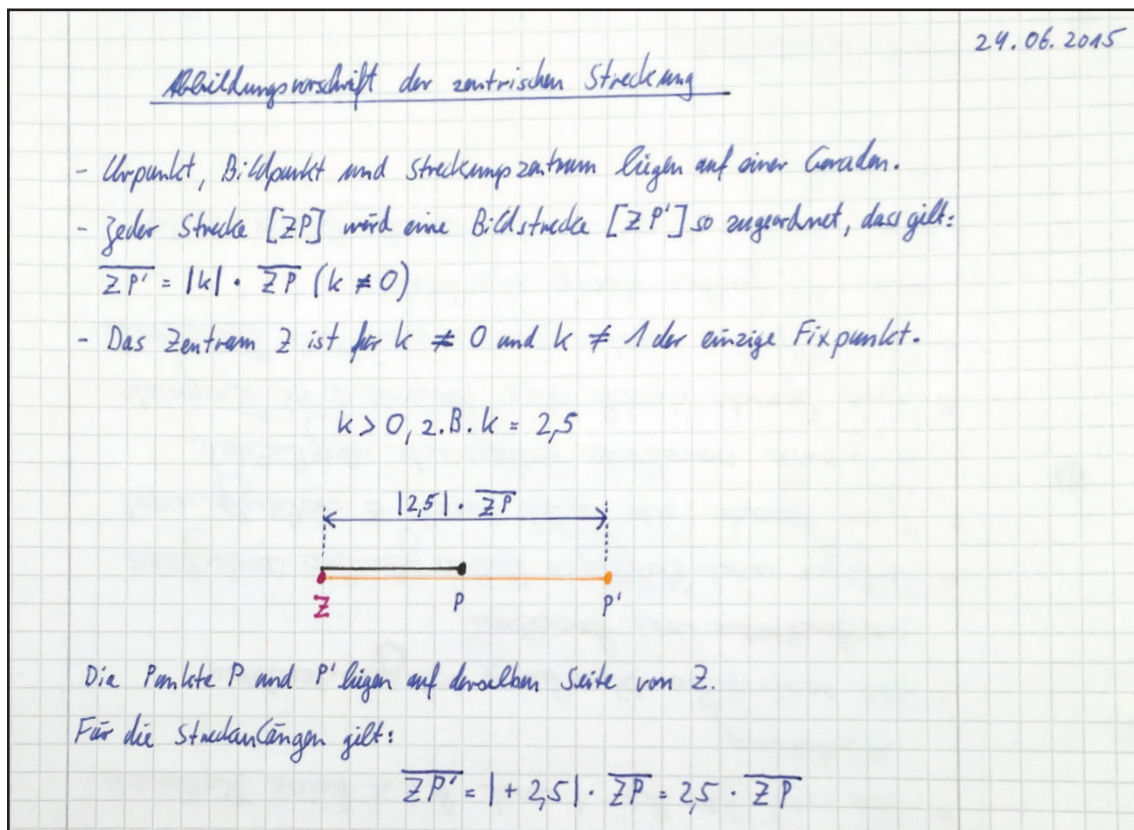 24.06.2015
Abbildungsvorschrift der zentrischen Streckung
- Urpunkt, Bildpunkt und Streckungszentrum liegen auf einer Geraden.
- Jeder Strecke [ZP] wird eine Bildstrecke [ZP'] so zugeordnet, dass gilt:
Z̅P̅'̅ = |k| · Z̅P̅ (k ≠ 0)
- Das Zentrum Z ist für k ≠ 0 und k ≠ 1 der einzige Fixpunkt.
k > 0, z.B. k = 2,5
|2,5| · Z̅P̅
Z P P'
Die Punkte P und P' liegen auf derselben Seite von Z.
Für die Streckenlängen gilt:
Z̅P̅'̅ = |+ 2,5| · Z̅P̅ = 2,5 · Z̅P̅